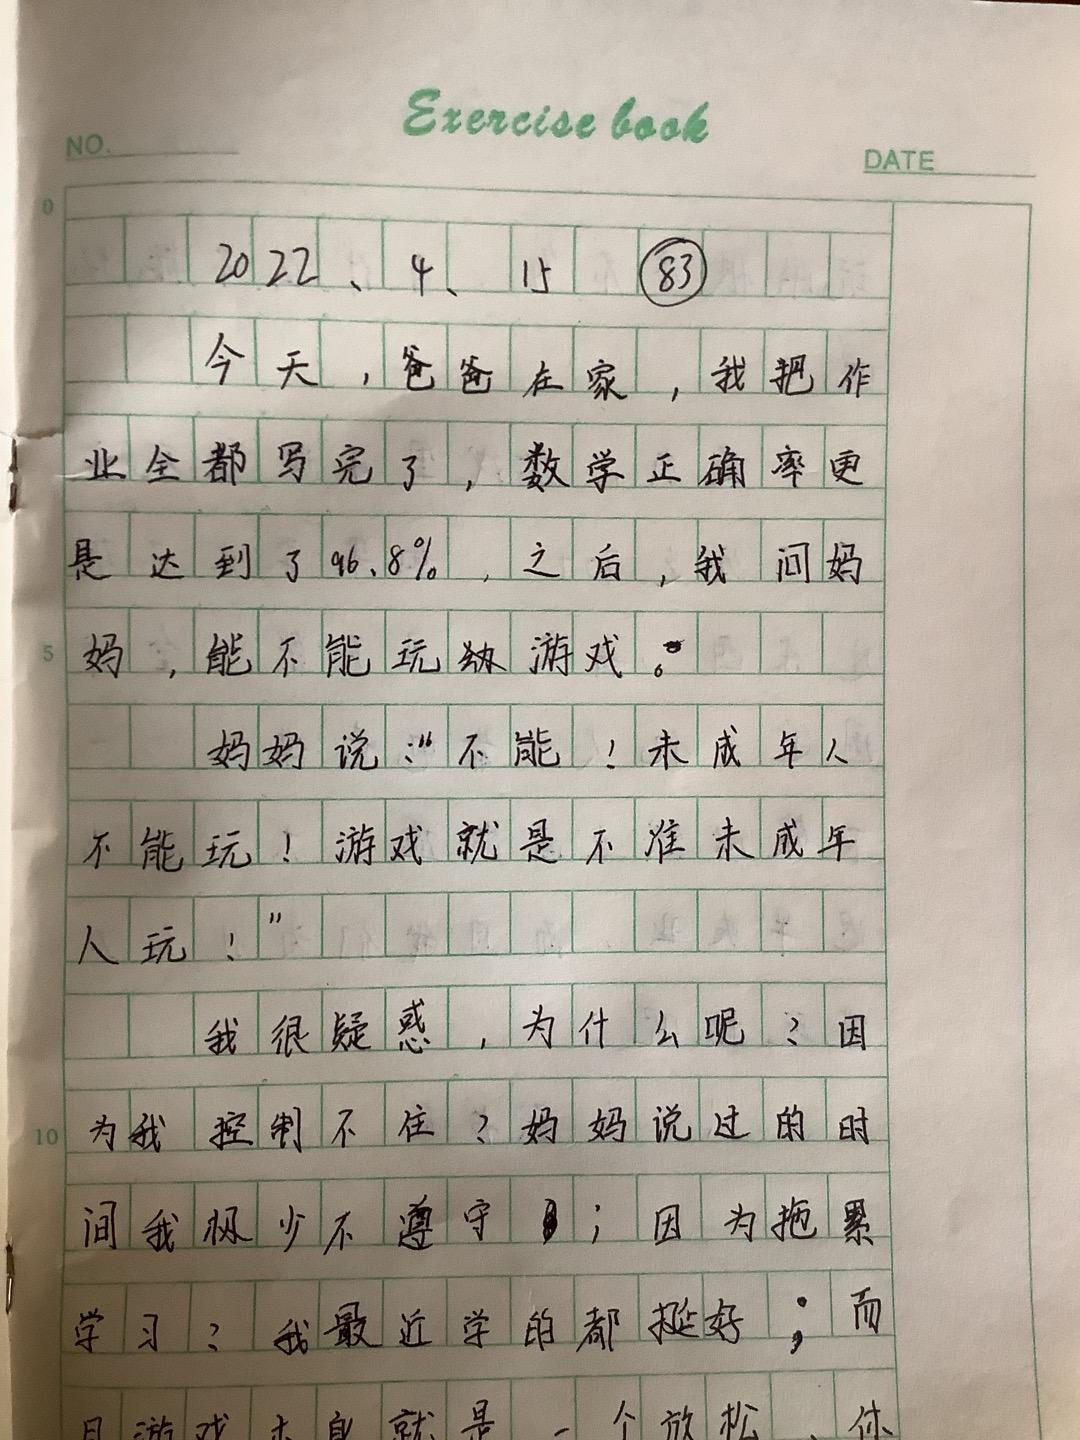 Exercise book
NO.
DATE
0
2022、4、15 83
今天，爸爸在家，我把作
业全都写完了，数学正确率更
是达到了96.8%，之后，我问妈
5
妈，能不能玩游戏。
妈妈说："不能！未成年人
不能玩！游戏就是不准未成年
人玩！"
我很疑惑，为什么呢？因
10
为我控制不住？妈妈说过的时
间我极少不遵守；因为拖累
学习？我最近学的都挺好；而
且游戏本身就是一个放松、休